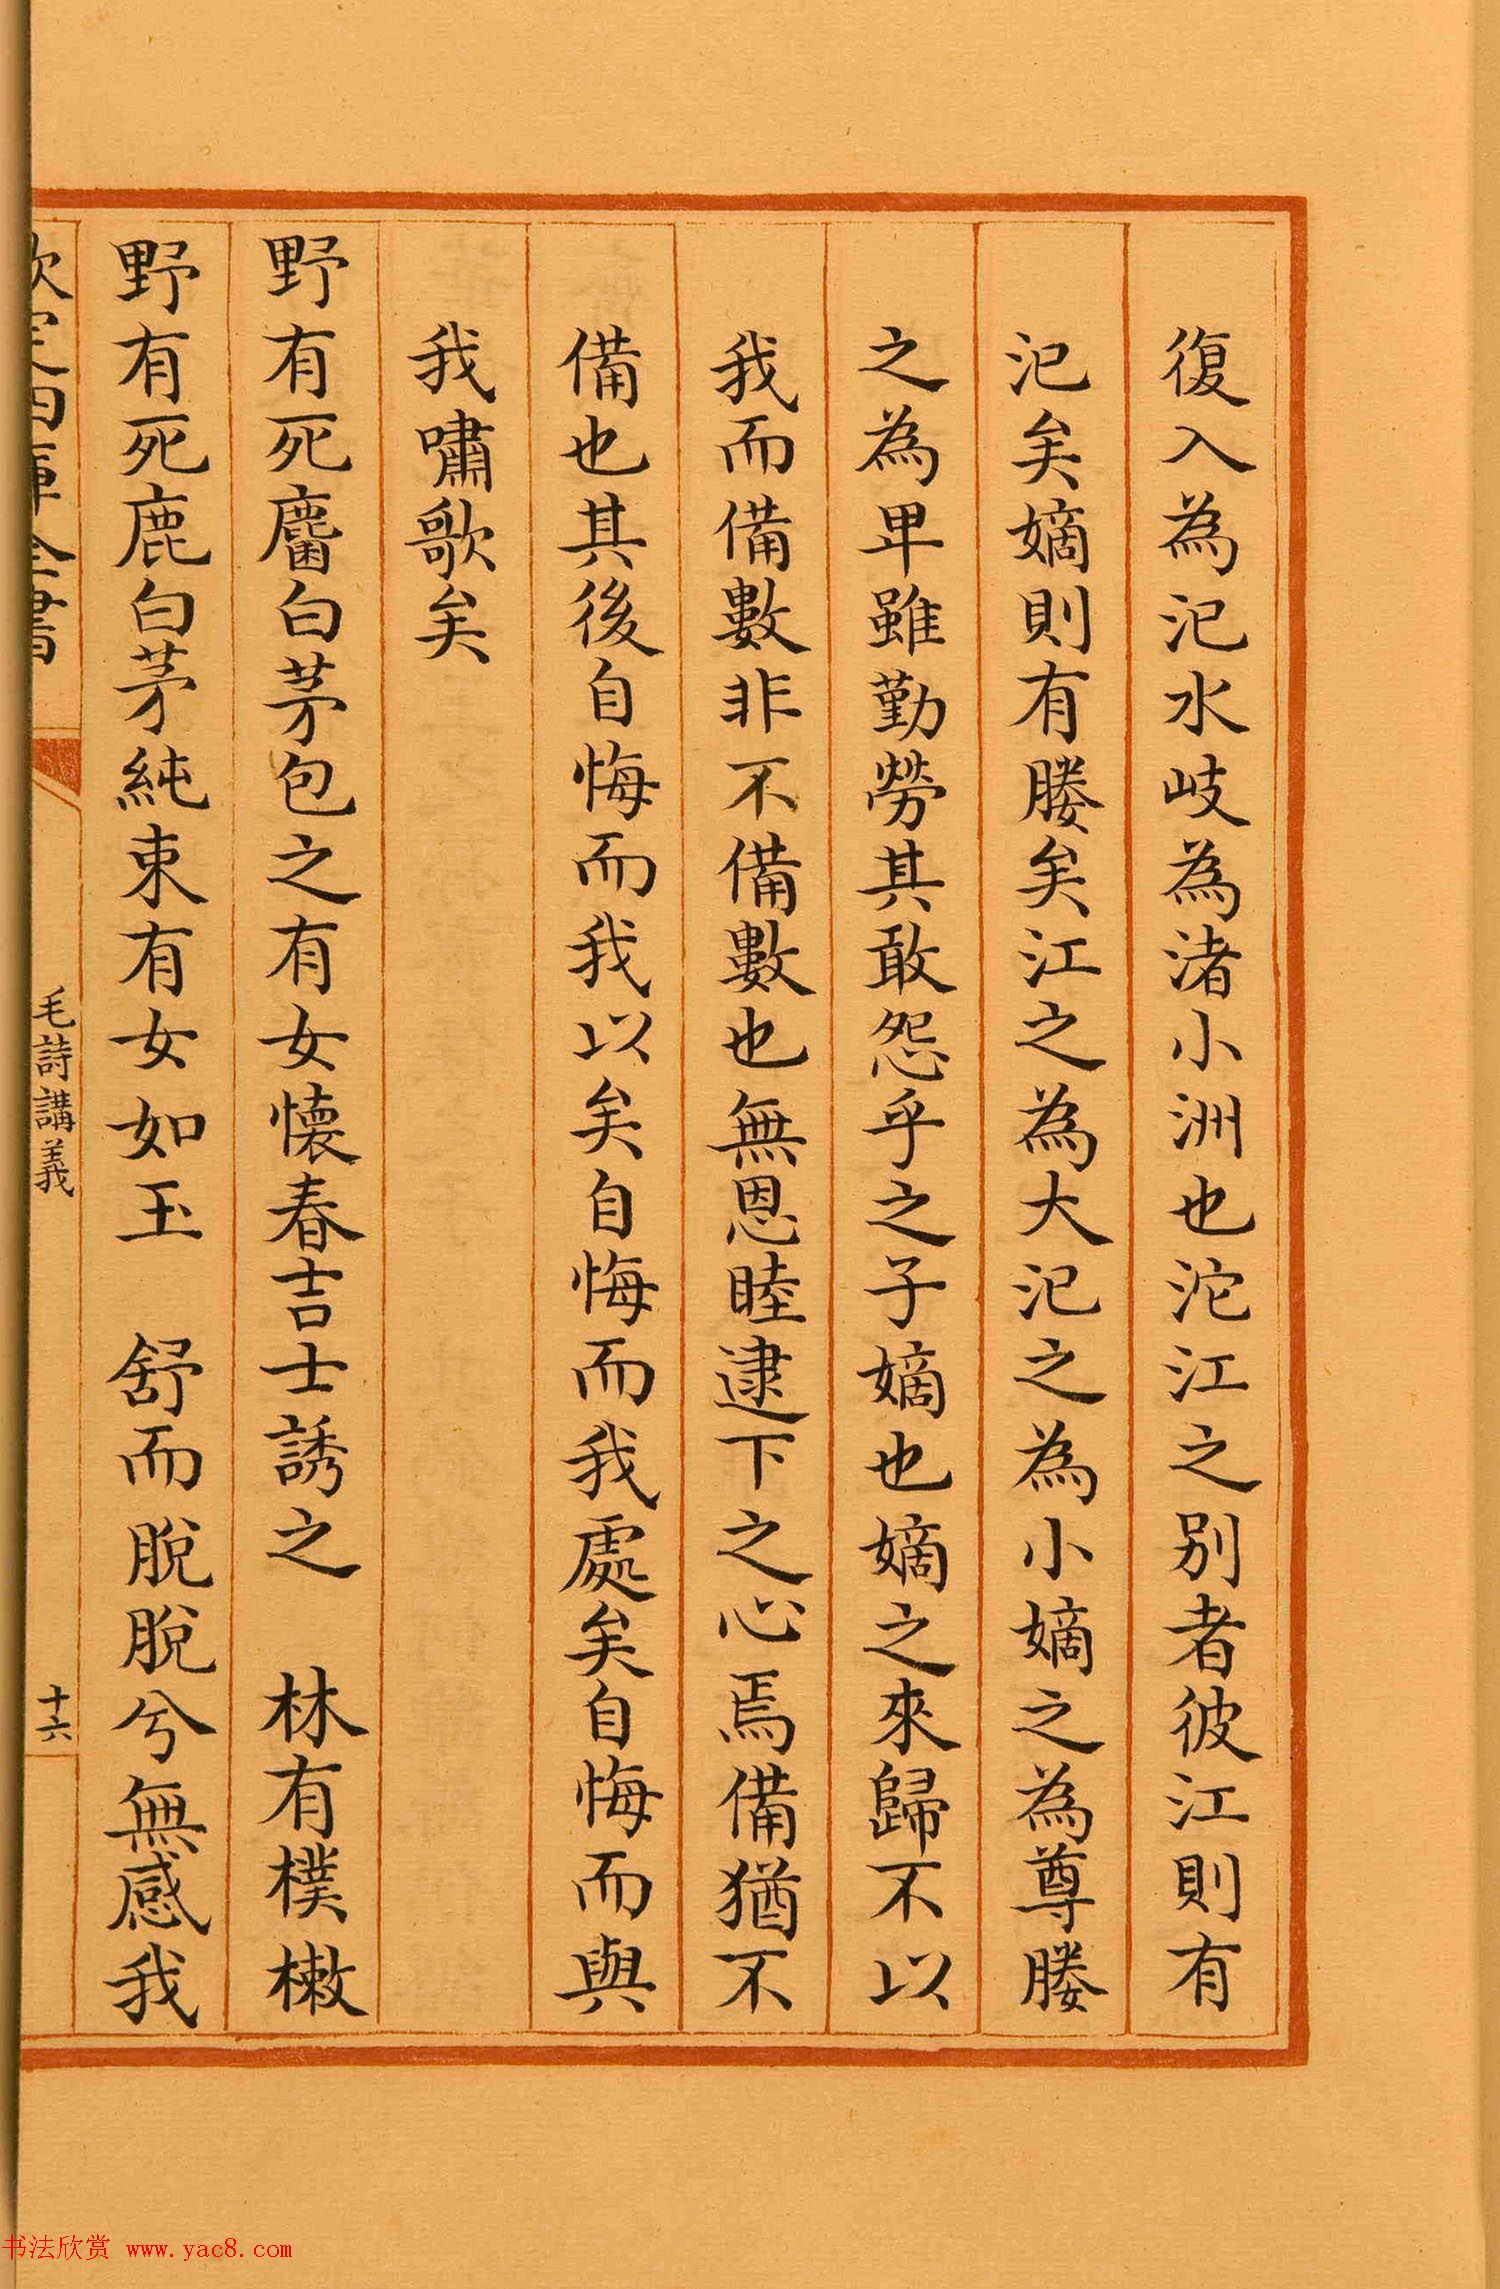 復入為汜水岐為渚小洲也沱江之别者彼江則有
汜矣嫡則有媵矣江之為大汜之為小嫡之為尊媵
之為卑雖勤勞其敢怨乎之子嫡也嫡之來歸不以
我而備數非不備數也無恩睦逮下之心焉備猶不
備也其後自悔而我以矣自悔而我處矣自悔而與
我嘯歌矣
野有死麕白茅包之有女懷春吉士誘之 林有樸樕
野有死鹿白茅純束有女如玉 舒而脫脫兮無感我
欽定四庫全書
毛詩講義
十六
书法欣赏 www.yac8.com